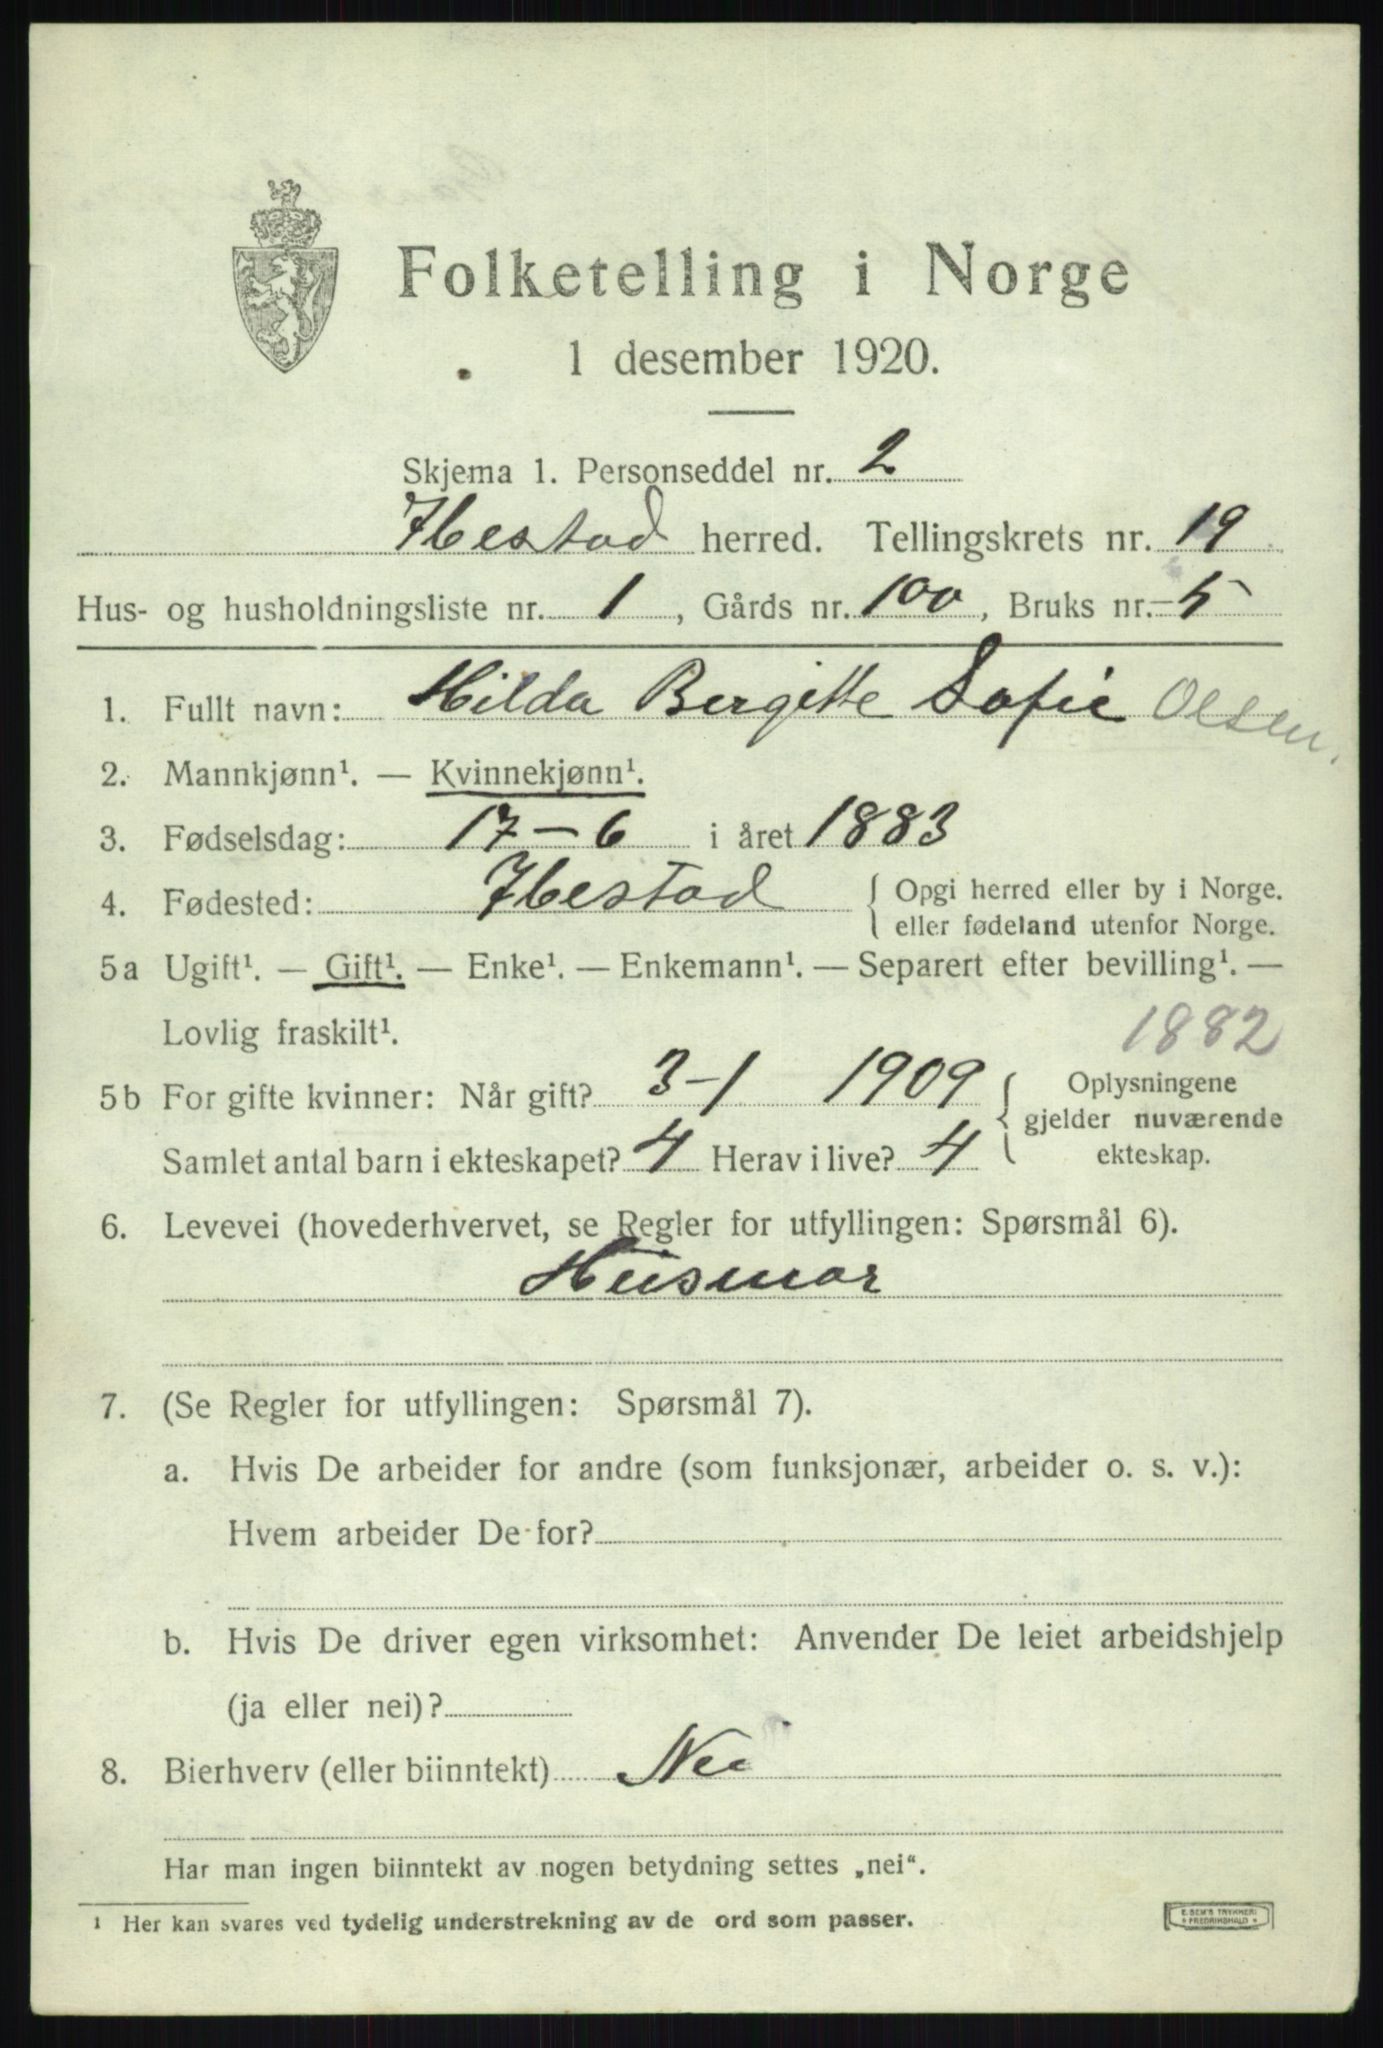 Folketelling i Norge
1 desember 1920.
Skjema 1. Personseddel nr. 2
Ibestad herred. Tellingskrets nr. 19
Hus- og husholdningsliste nr. 1, Gårds nr. 100, Bruks nr. 5
1. Fullt navn: Hilda Bergitte Sofie Olsen.
2. Mannkjønn¹. — Kvinnekjønn¹.
3. Fødselsdag: 17-6 i året 1883
4. Fødested: Ibestad { Opgi herred eller by i Norge.
eller fødeland utenfor Norge.
5a Ugift¹. — Gift¹. — Enke¹. — Enkemann¹. — Separert efter bevilling¹. —
Lovlig fraskilt¹. 1882
5b For gifte kvinner: Når gift? 3-1 1909 { Oplysningene
gjelder nuværende
Samlet antal barn i ekteskapet? 4 Herav i live? 4 ekteskap.
6. Levevei (hovederhvervet, se Regler for utfyllingen: Spørsmål 6).
Husmor
7. (Se Regler for utfyllingen: Spørsmål 7).
a. Hvis De arbeider for andre (som funksjonær, arbeider o. s. v.):
Hvem arbeider De for?
b. Hvis De driver egen virksomhet: Anvender De leiet arbeidshjelp
(ja eller nei)?
8. Bierhverv (eller biinntekt) Nei
Har man ingen biinntekt av nogen betydning settes „nei“.
¹ Her kan svares ved tydelig understrekning av de ord som passer.
E. SEM'S TRYKKERI
FREDRIKSHALD